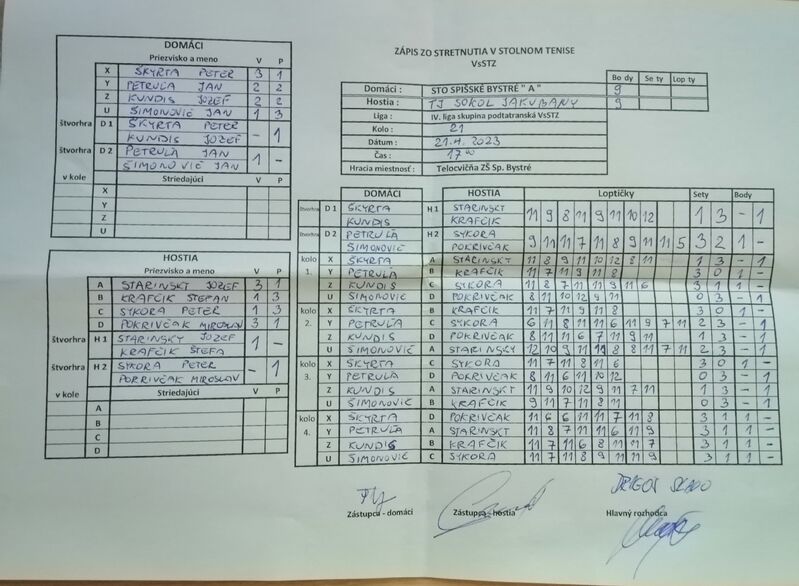 DOMÁCI
Priezvisko a meno V P
X ŠKYRTA PETER 3 1
Y PETRUĽA JAN 2 2
Z KUNDIS JOZEF 2 2
U ŠIMONOVIČ JAN 1 3
štvorhra D 1 ŠKYRTA PETER
KUNDIS JOZEF - 1
štvorhra D 2 PETRULA JAN
ŠIMONOVIČ JAN 1 -
v kole Striedajúci V P
X
Y
Z
U
HOSTIA
Priezvisko a meno V P
A STARINSKY JOZEF 3 1
B KRAFČIK ŠTEFAN 1 3
C SYKORA PETER 1 3
D POKRIVČAK MIROSLAV 3 1
štvorhra H 1 STARINSKY JOZEF
KRAFČIK ŠTEFA 1 -
štvorhra H 2 SYKORA PETER
POKRIVČAK MIROSLAV - 1
v kole Striedajúci V P
A
B
C
D
ZÁPIS ZO STRETNUTIA V STOLNOM TENISE
VsSTZ
Bo dy Se ty Lop ty
Domáci : STO SPIŠSKÉ BYSTRÉ " A " 9
Hostia : TJ SOKOL JAKUBANY 9
Liga : IV. liga skupina podtatranská VsSTZ
Kolo : 21
Dátum : 21.4. 2023
Čas : 17 00
Hracia miestnosť : Telocvičňa ZŠ Sp. Bystré
DOMÁCI HOSTIA Loptičky Sety Body
štvorhra D 1 ŠKYRTA H 1 STARINSKY
KUNDIS KRAFČIK 11 9 8 11 9 11 10 12 1 3 - 1
štvorhra D 2 PETRULA H 2 SYKORA
SIMONOVIC POKRIVČAK 9 11 11 7 11 8 9 11 11 5 3 2 1 -
kolo X ŠKYRTA A STARINSKY 11 8 9 11 10 12 8 11 1 3 - 1
1. Y PETRULA B KRAFČIK 11 7 11 9 11 8 3 0 1 -
Z KUNDIS C SYKORA 11 8 7 11 11 9 11 6 3 1 1 -
U SIMONOVIC D POKRIVČAK 8 11 10 12 9 11 0 3 - 1
kolo X ŠKYRTA B KRAFČIK 11 7 11 9 11 8 3 0 1 -
2. Y PETRULA C SYKORA 6 11 8 11 11 6 11 9 7 11 2 3 - 1
Z KUNDIS D POKRIVČAK 8 11 11 6 7 11 9 11 1 3 - 1
U SIMONOVIČ A STARINSKY 12 10 9 11 11 8 8 11 7 11 2 3 - 1
kolo X ŠKYRTA C SYKORA 11 7 11 8 11 6 3 0 1 -
3. Y PETRULA D POKRIVČAK 8 11 6 11 10 12 0 3 - 1
Z KUNDIS A STARINSKY 11 9 10 12 9 11 7 11 1 3 - 1
U ŠIMONOVIC B KRAFČIK 9 11 7 11 8 11 0 3 - 1
kolo X ŠKYRTA D POKRIVČAK 11 6 6 11 11 7 11 8 3 1 1 -
4. Y PETRULA A STARINSKY 11 8 7 11 11 6 11 9 3 1 1 -
Z KUNDIS B KRAFČIK 11 7 11 6 8 11 11 7 3 1 1 -
U SIMONOVIČ C SYKORA 11 7 11 8 9 11 11 9 3 1 1 -
Zástupca - domáci Zástupca - hostia Hlavný rozhodca